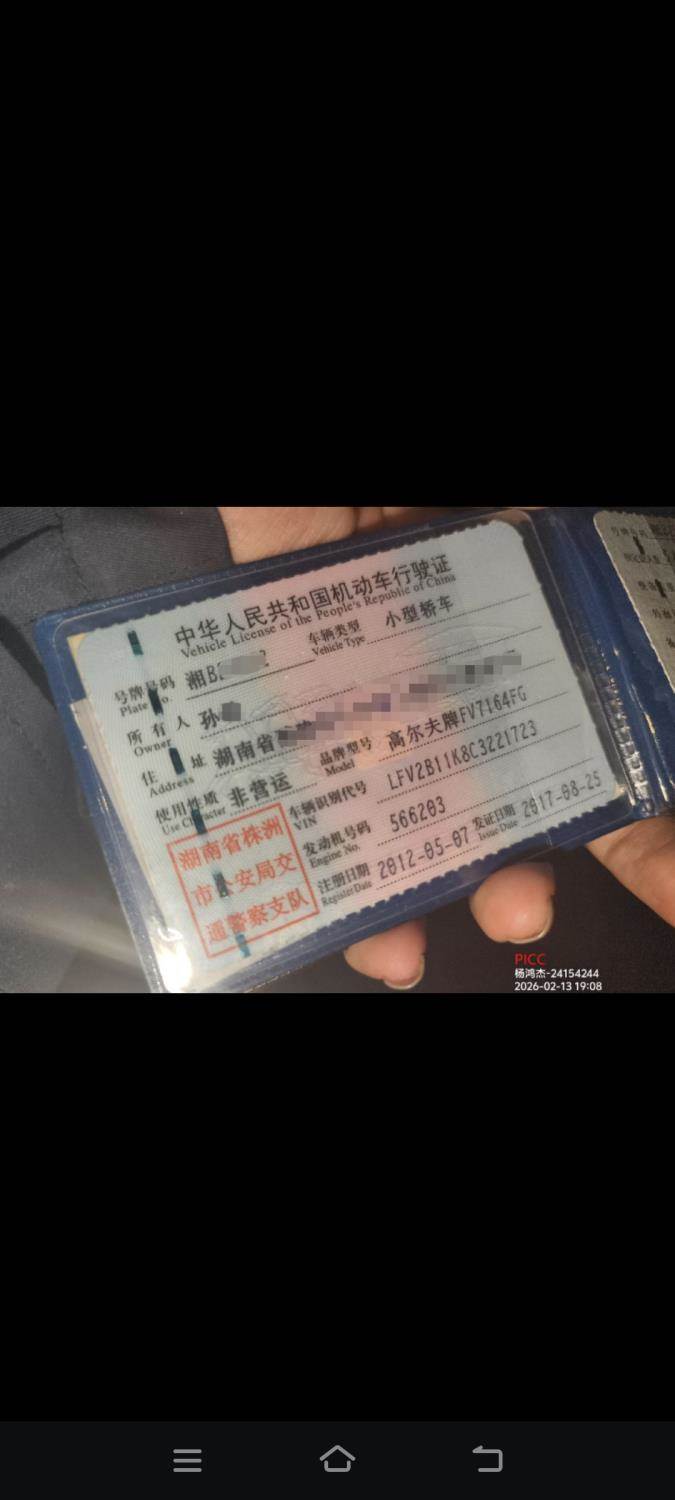 中华人民共和国机动车行驶证
Vehicle License of the People's Republic of China
号牌号码 湘B 车辆类型 小型轿车
Plate No. Vehicle Type
所有人 孙
Owner
住址 湖南省
Address
使用性质 非营运 品牌型号 高尔夫牌FV7164FG
Use Character Model
车辆识别代号 LFV2B11K8C3221723
VIN
湖南省株洲
市公安局交
通警察支队
发动机号码 566203
Engine No.
注册日期 2012-05-07 发证日期 2017-08-25
Register Date Issue Date
PICC
杨鸿杰-24154244
2026-02-13 19:08